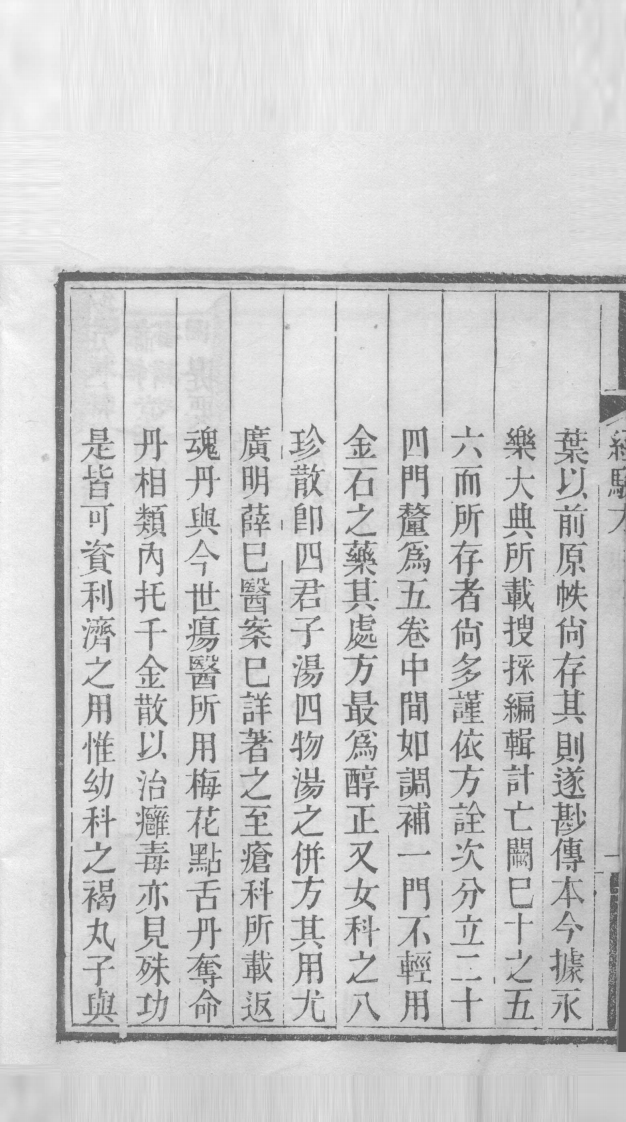 經驗方
葉以前原帙尙存其則遂尠傳本今據永
樂大典所載搜採編輯計亡闕巳十之五
六而所存者尙多謹依方詮次分立二十
四門釐爲五卷中間如調補一門不輕用
金石之藥其處方最爲醇正又女科之八
珍散卽四君子湯四物湯之併方其用尤
廣明薛巳醫案巳詳著之至瘡科所載返
魂丹與今世瘍醫所用梅花點舌丹奪命
丹相類內托千金散以治癰毒亦見殊功
是皆可資利濟之用惟幼科之褐丸子與